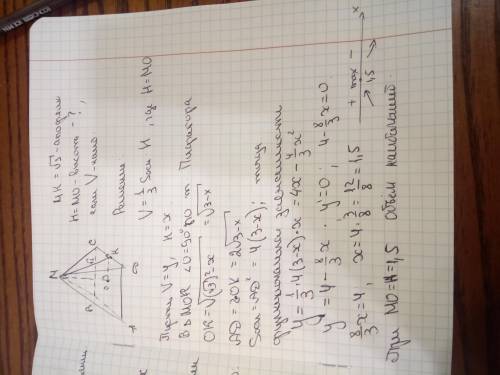 MK = √3 - апофема
H = MO - высота - ?,
если V - наиб
Решение
V = 1/3 Sосн H, где H = MO
Пусть V = y, H = x
B Δ MOK <O = 90° по т Пифагора
OK = √(√3)² - x² = √3-x
AD = 2OK = 2√3-x
Sосн = AD² = 4(3-x); тогда
функциональная зависимость
y = 1/3 · 4(3-x)·x = 4x - 4/3 x²
y' = 4 - 8/3 x ; y' = 0 ; 4 - 8/3 x = 0
8/3 x = 4, x = 4 · 3/8 = 12/8 = 1,5
+ max - x
1,5
При MO = H = 1,5 объем наибольший.
M
C
K
O
A